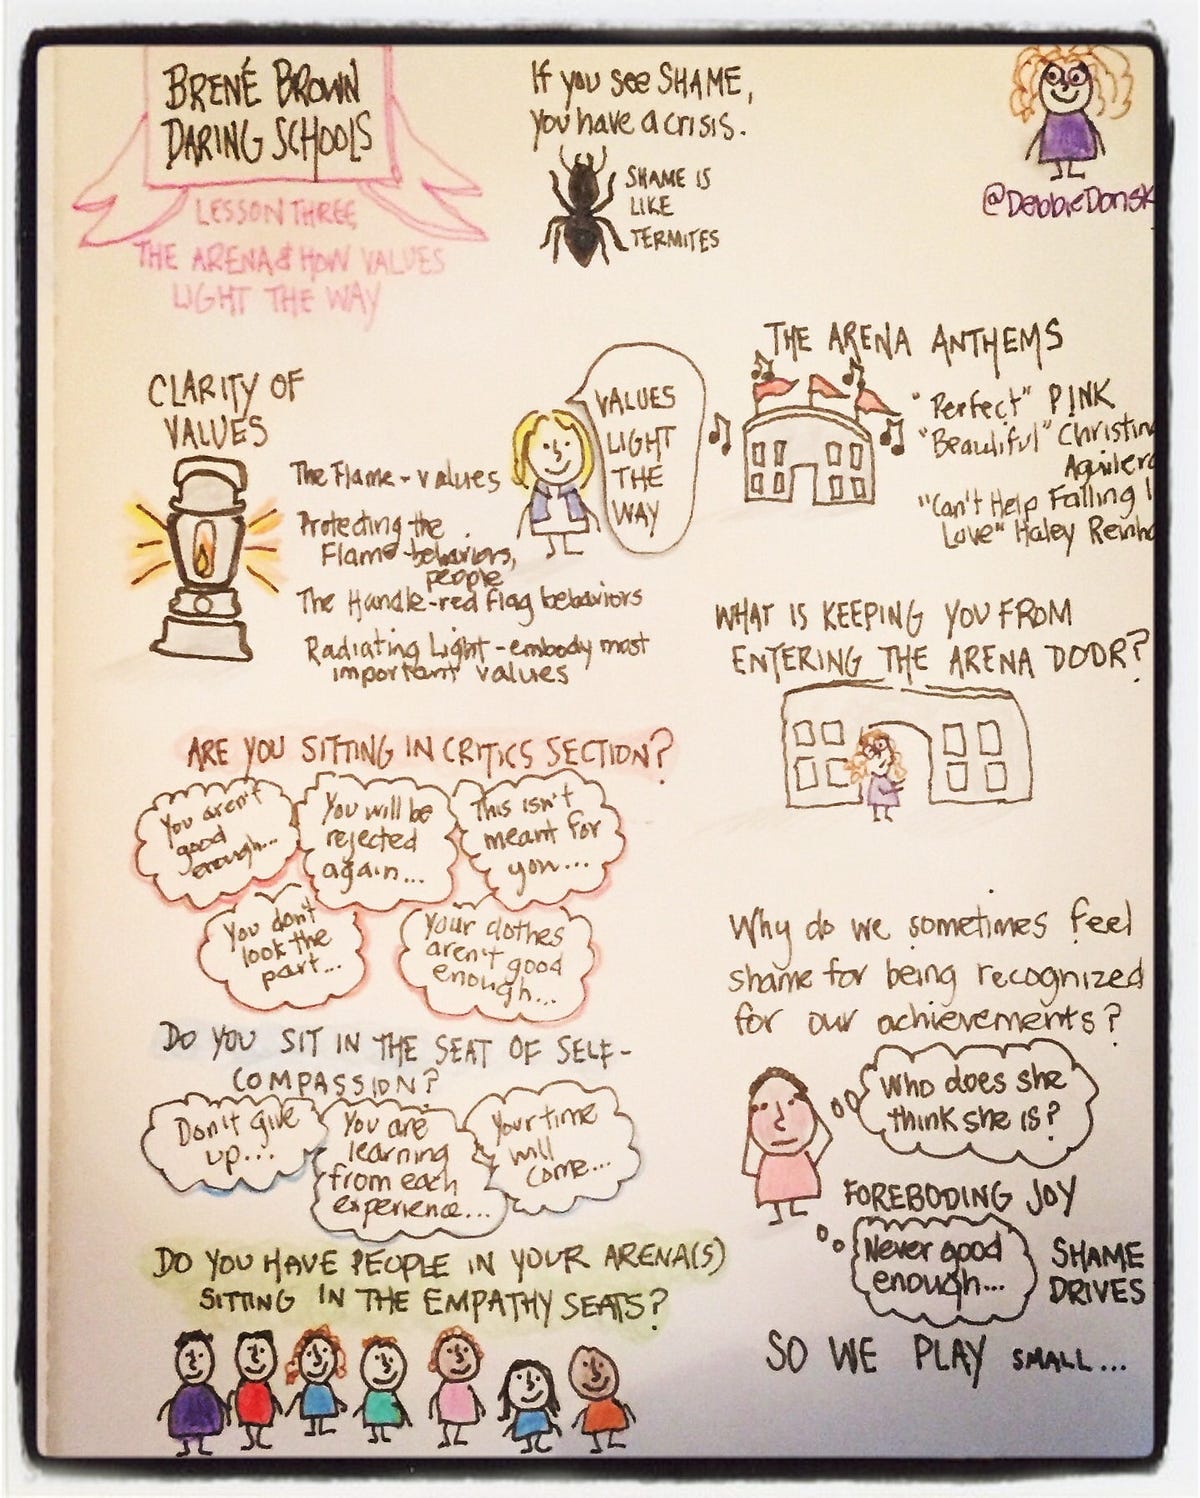 BRENÉ BROWN
DARING SCHOOLS
LESSON THREE
THE ARENA & HOW VALUES
LIGHT THE WAY
If you see SHAME,
you have a crisis.
SHAME IS
LIKE
TERMITES
@DebbieDonsk
CLARITY OF
VALUES
The Flame - values
Protecting the
Flame - behaviors,
people
The Handle - red flag behaviors
Radiating Light - embody most
important values
VALUES
LIGHT
THE
WAY
THE ARENA ANTHEMS
"Perfect" P!NK
"Beautiful" Christin
Aguilera
"Can't Help Falling I
Love" Haley Reinha
WHAT IS KEEPING YOU FROM
ENTERING THE ARENA DOOR?
ARE YOU SITTING IN CRITICS SECTION?
You aren't
good
enough...
You will be
rejected
again...
This isn't
meant for
you...
You don't
look the
part...
Your clothes
aren't good
enough...
DO YOU SIT IN THE SEAT OF SELF-
COMPASSION?
Don't give
up...
You are
learning
from each
experience...
Your time
will
come...
DO YOU HAVE PEOPLE IN YOUR ARENA(S)
SITTING IN THE EMPATHY SEATS?
Why do we sometimes feel
shame for being recognized
for our achievements?
Who does she
think she is?
FOREBODING JOY
Never good
enough...
SHAME
DRIVES
SO WE PLAY SMALL...